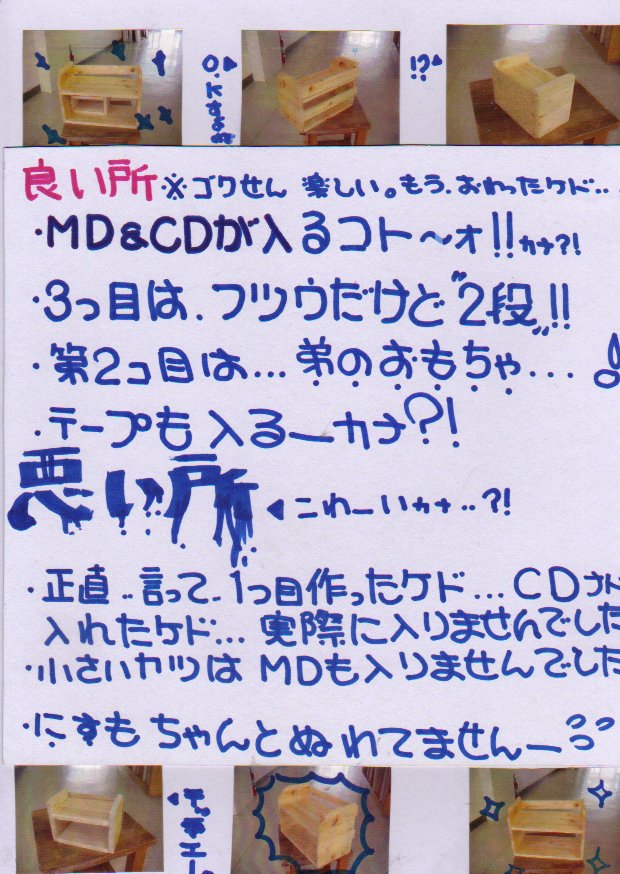 O.Kすよ
!?
良い所※ゴクせん 楽しい。もう.おわったケド..
・MD&CDが入るコト～ォ!!カナ?!
・3っ目は.フツウだけど"2段"!!
・第2コ目は...弟のおもちゃ...
・テープも入るーカナ?!
悪い所◀こわーいカナ..?!
・正直..言って.1つ目作ったケド...CDさ
入れたケド...実際に入りませんでした
・小さいヤツはMDも入りませんでした
・にすもちゃんとぬれてませんー